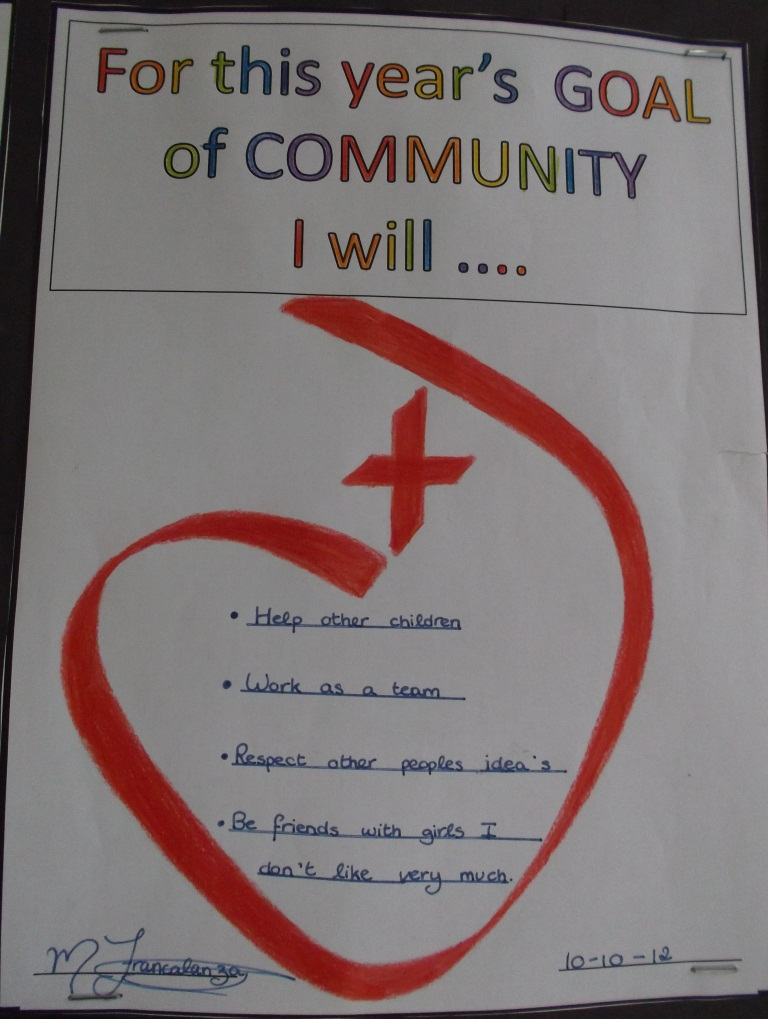 For this year's GOAL
of COMMUNITY
I will ....
• Help other children
• Work as a team
• Respect other peoples idea's
• Be friends with girls I
don't like very much.
M Francalanza
10-10-12